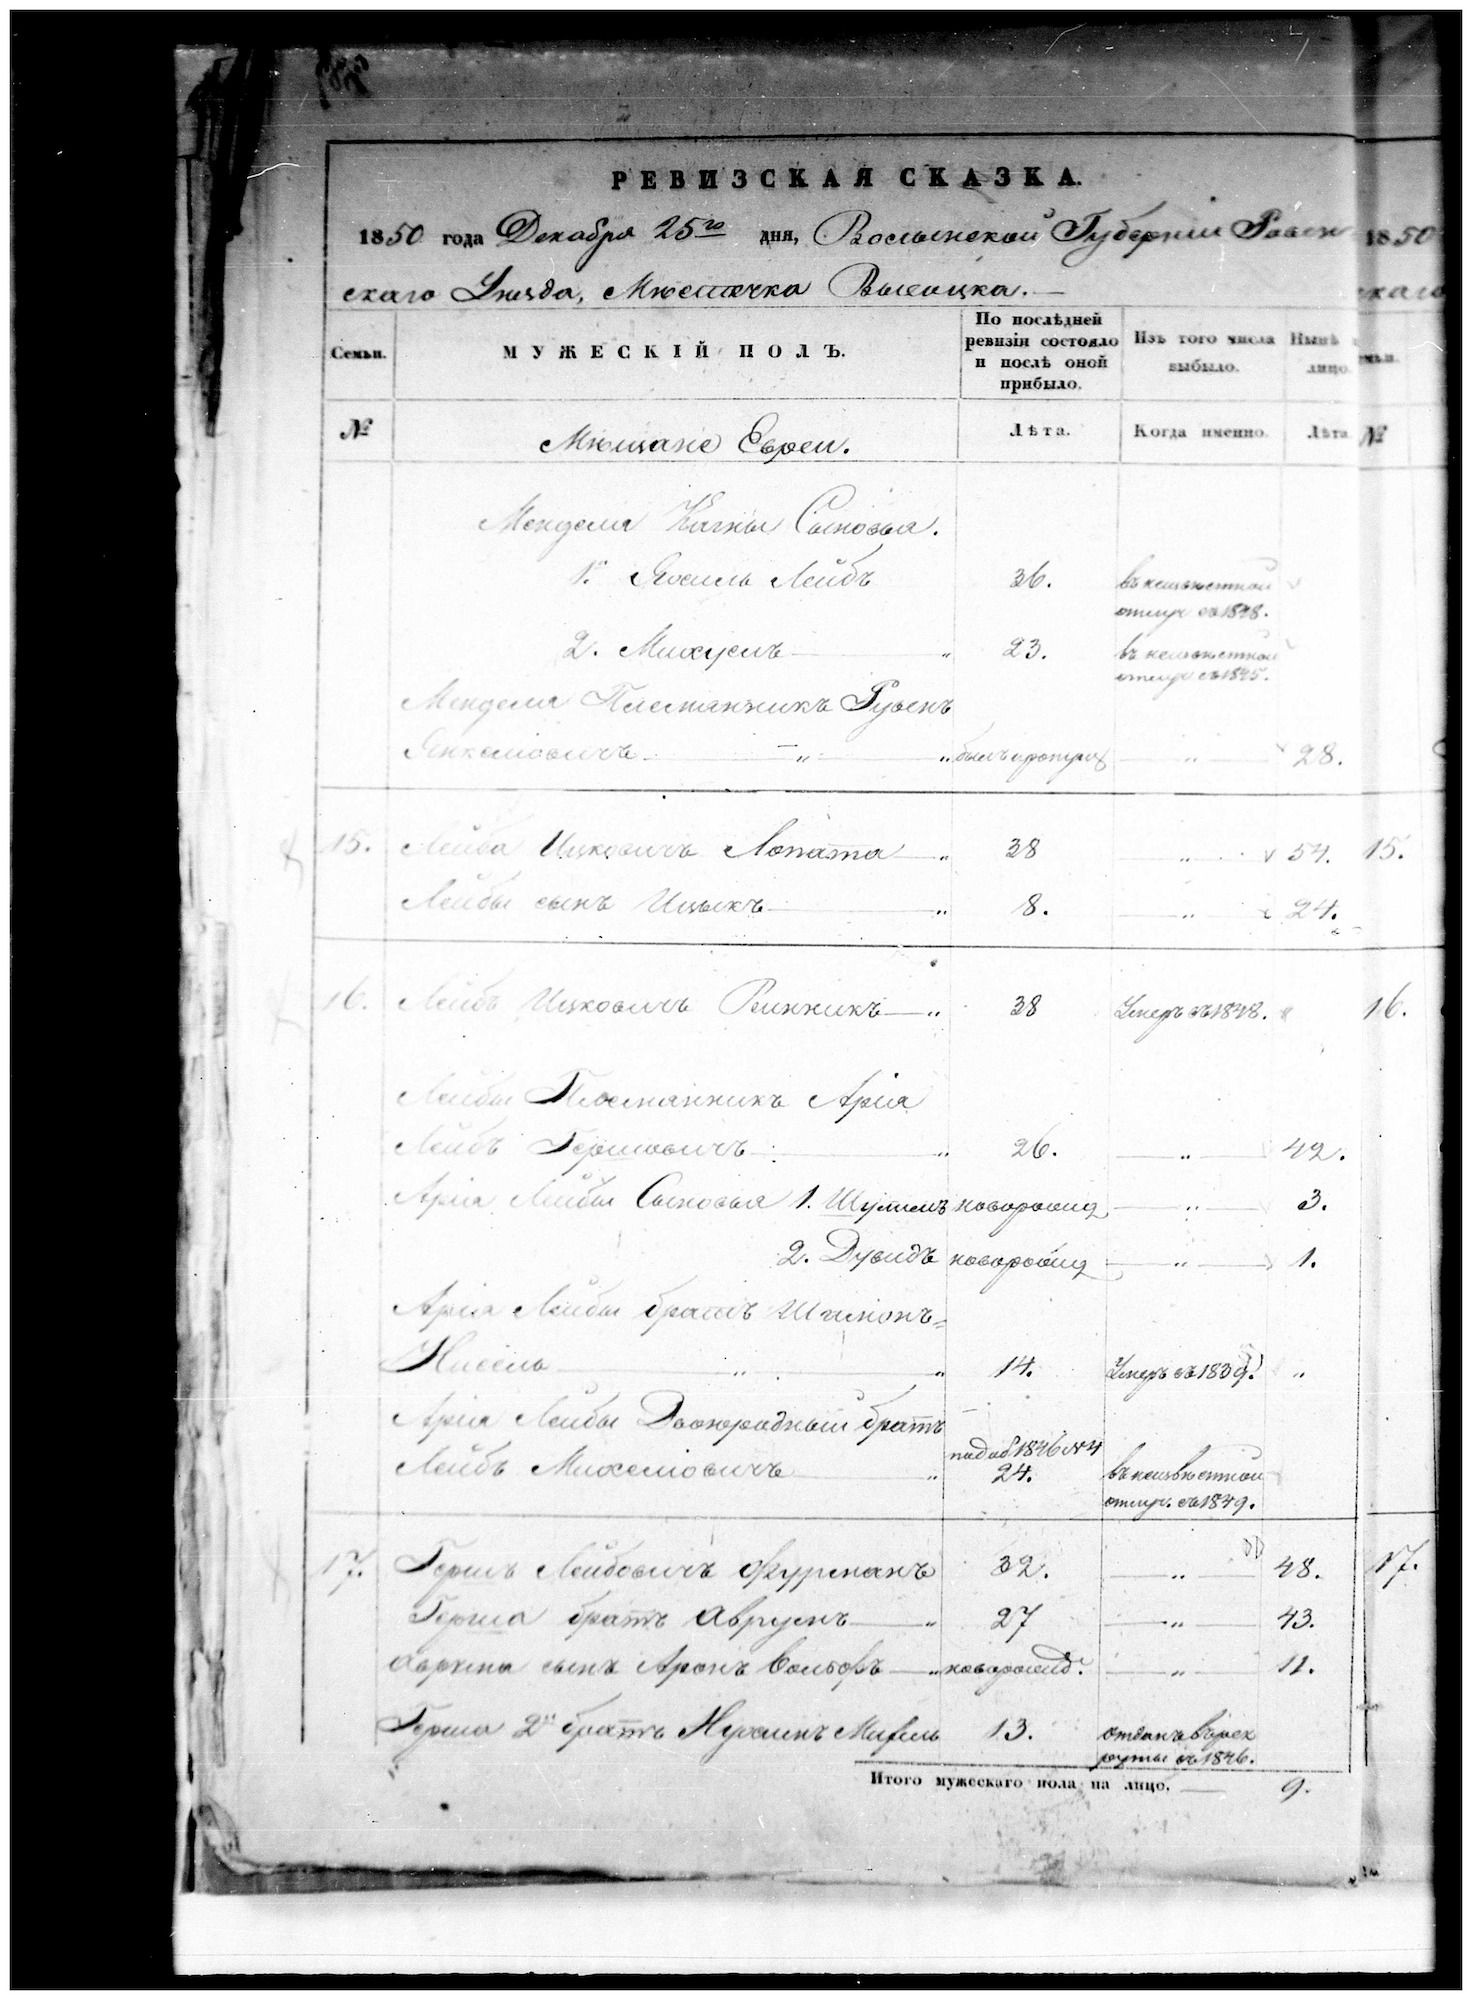 РЕВИЗСКАЯ СКАЗКА.
1850 года Декабря 25го дня, Волынской Губерніи Ровен
скаго Уѣзда, Мѣстечка Высоцка.
Семьи.
МУЖЕСКІЙ ПОЛЪ.
По послѣдней ревизіи состояло и послѣ оной прибыло.
Изъ того числа выбыло.
Нынѣ лицо.
№
Мѣщане Евреи.
Лѣта.
Когда именно.
Лѣта.
№
Менделя Сыновья.
1. Лейбъ 36. въ неизвѣстной
отлуч съ 1848.
2. Михуель 23. въ неизвѣстной
отлуч съ 1845.
Менделя Племянникъ Рувенъ
Янкелiовичъ " " былъ пропущ " 28.
15. Лейба Ицковичъ Лопата " 38 " 54. 15.
Лейбы сынъ Ицыкъ " 8. " 24.
16. Лейбъ Ицковичъ Винникъ " 38 Умеръ въ 1848. " 16.
Лейбы Племянникъ Арія
Лейбъ Гершовичъ " 26. " 42.
Арія Лейбы Сыновья 1. Шулимъ новорожд " 3.
2. Дувидъ новорожд " 1.
Арія Лейбы братъ Шимонъ=
Нисель " " 14. Умеръ въ 1839. "
Арія Лейбы Двоюродный братъ
Лейбъ Михелiовичъ " 1846 №4
24. въ неизвѣстной
отлуч. съ 1849.
17. Гершъ Лейбовичъ Фурманъ 32. " 48. 17.
Герша братъ Аврумъ " 27 " 43.
Аврума сынъ Аронъ Вольфъ " новорожд. " 11.
Герша 2й братъ Нухимъ 13. отданъ въ рек
руты въ 1846.
Итого мужескаго пола на лицо. 9.